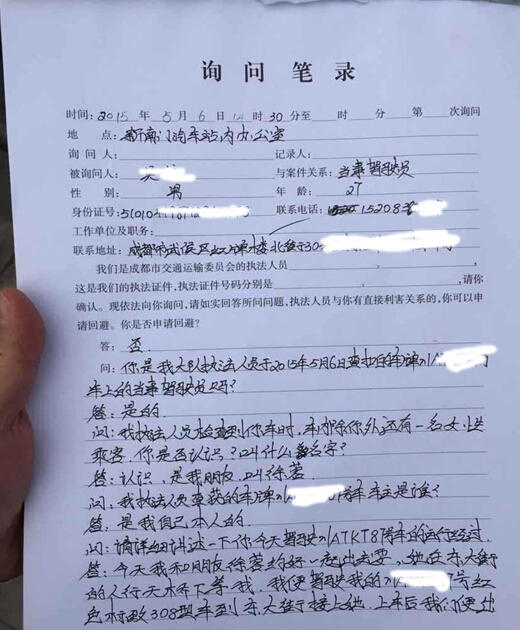 询问笔录
时间：2015年5月6日14时30分至 时 分 第 次询问
地 点：新南门汽车站内办公室
询 问 人： 记录人：
被询问人：吴 与案件关系：当事驾驶员
性 别：男 年 龄：27
身份证号：51010 联系电话：15208
工作单位及职务：
联系地址：成都市武侯区 楼北 30
我们是成都市交通运输委员会的执法人员
这是我们的执法证件，执法证件号码分别是 ，请你
确认。现依法向你询问，请如实回答所问问题，执法人员与你有直接利害关系的，你可以申
请回避。你是否申请回避？
答：否.
问：你是我大队执法人员于2015年5月6日查扣的车牌川A
车上的当事驾驶员吗？
答：是的.
问：我执法人员检查到你车时，车内除你外还有一名女性
乘客，你是否认识？叫什么名字？
答：认识，是我朋友，叫徐蓉.
问：我执法人员查获的车牌川A 号车车主是谁？
答：是我自己本人的.
问：请详细讲述一下你今天驾驶川ATKT87号车的运行经过.
答：今天我和朋友徐蓉约好一起出去耍，她在东大街
的人行天桥下等我，我便驾驶我的川A 7号红
色标致308型车到东大街接上她，上车后我们便出